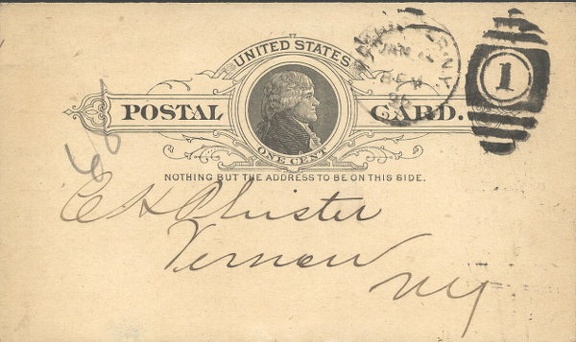 UNITED STATES
POSTAL CARD.
ONE CENT
JAN
1
NOTHING BUT THE ADDRESS TO BE ON THIS SIDE.
E H Chister
Vernon
NY